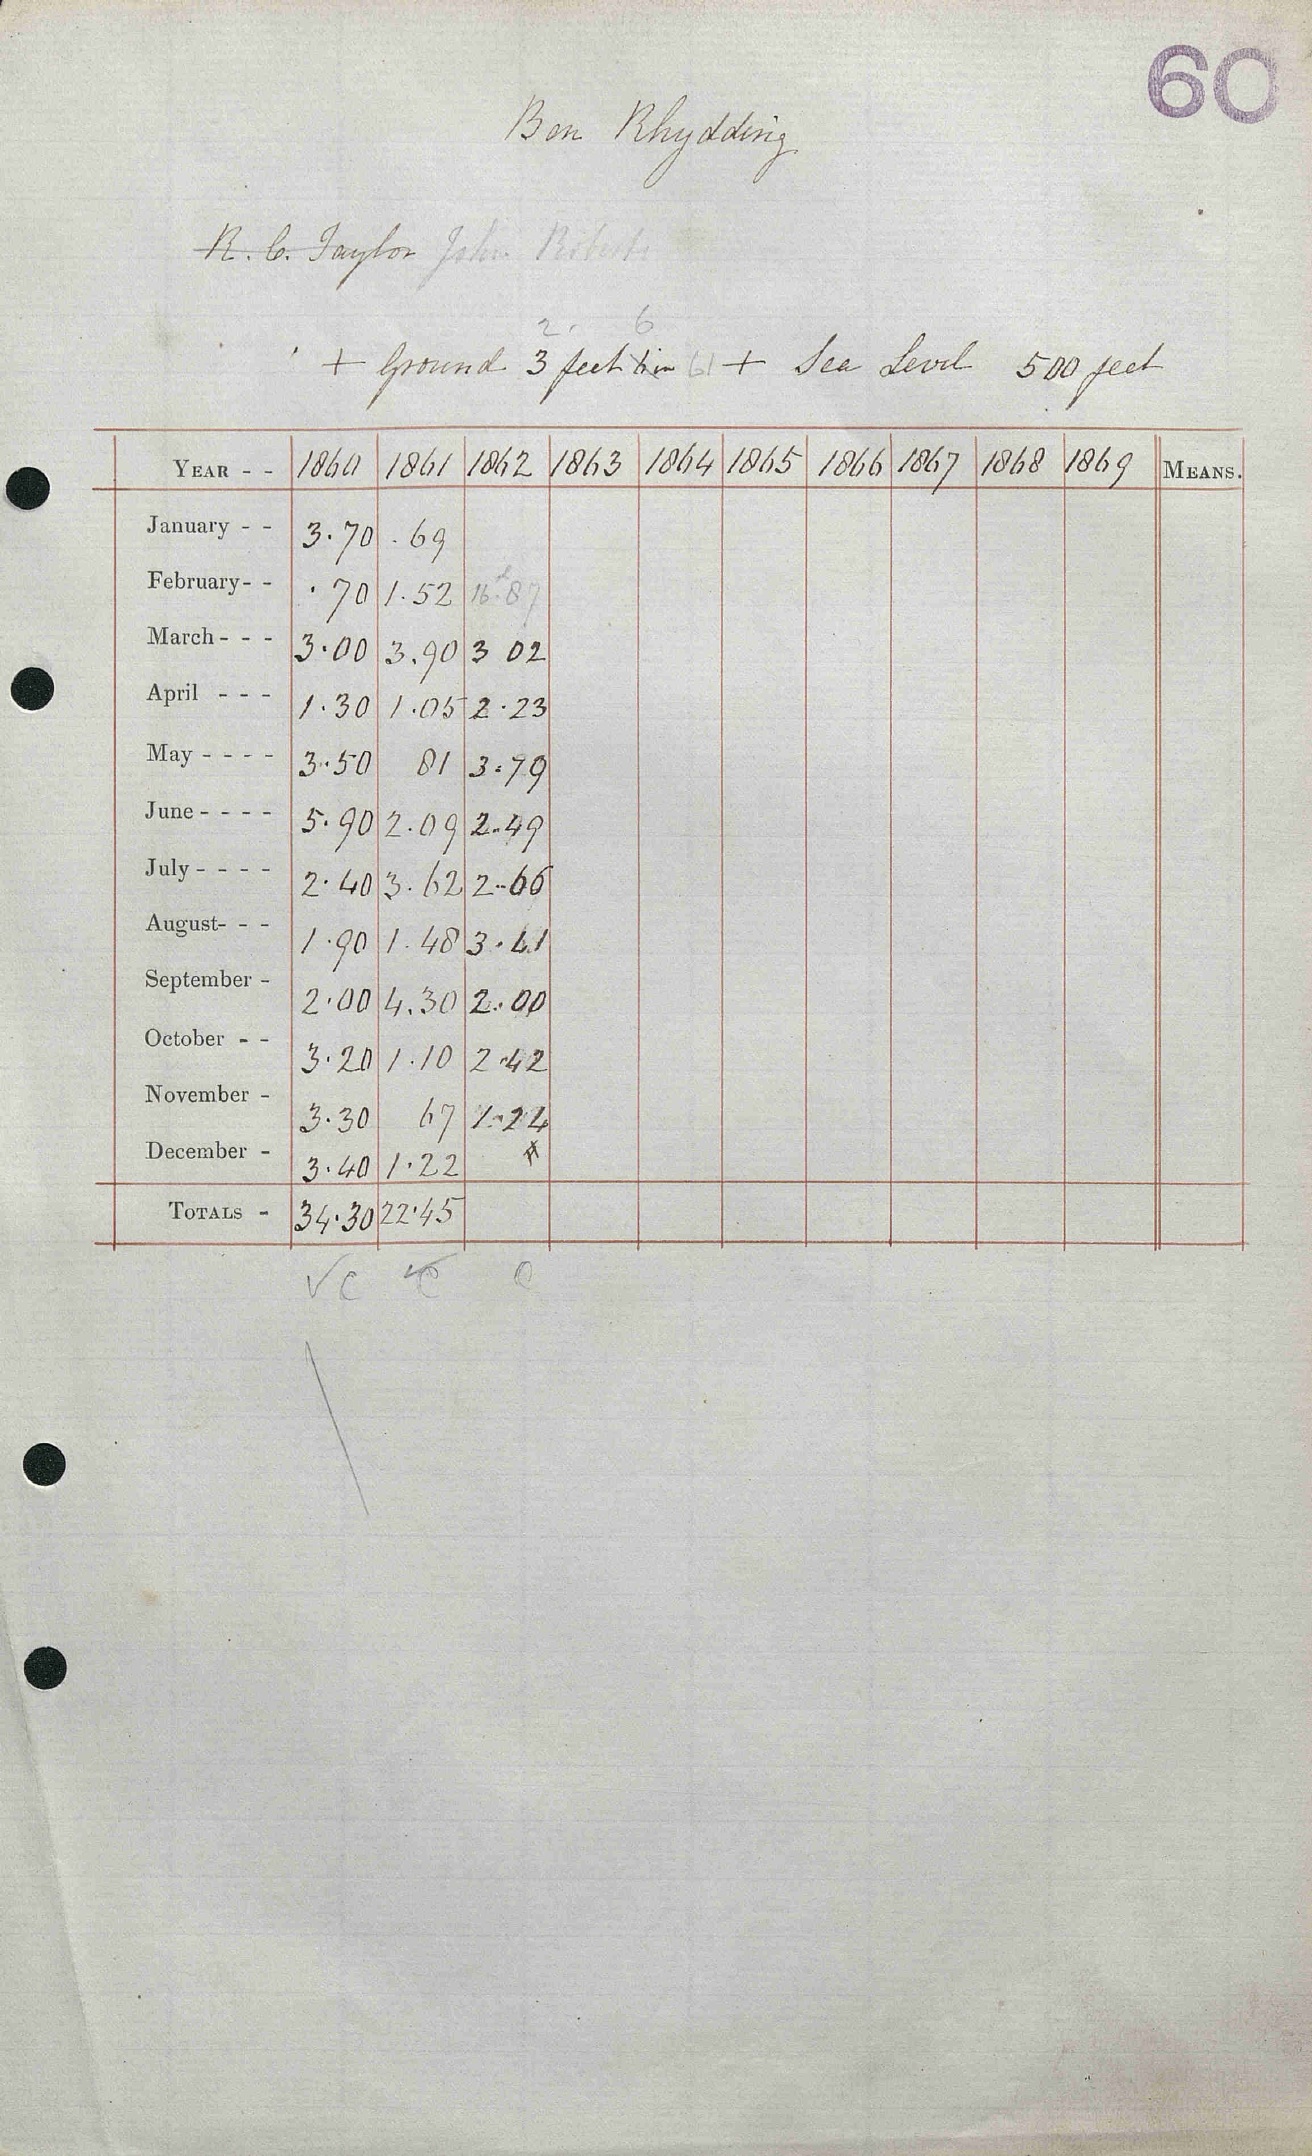 60
Ben Rhydding
R. C. Taylor John Roberts
2. 6
+ Ground 3 feet 6 in 61 + Sea Level 500 feet
YEAR - - 1860 1861 1862 1863 1864 1865 1866 1867 1868 1869 MEANS.
January - - 3.70 .69
February - - .70 1.52 .87
March - - - 3.00 3.90 3 02
April - - - 1.30 1.05 2.23
May - - - - 3.50 81 3.79
June - - - - 5.90 2.09 2.49
July - - - - 2.40 3.62 2.66
August - - - 1.90 1.48 3.41
September - 2.00 4.30 2.00
October - - 3.20 1.10 2.42
November - 3.30 67 1.24
December - 3.40 1.22
TOTALS - 34.30 22.45
✓C C C